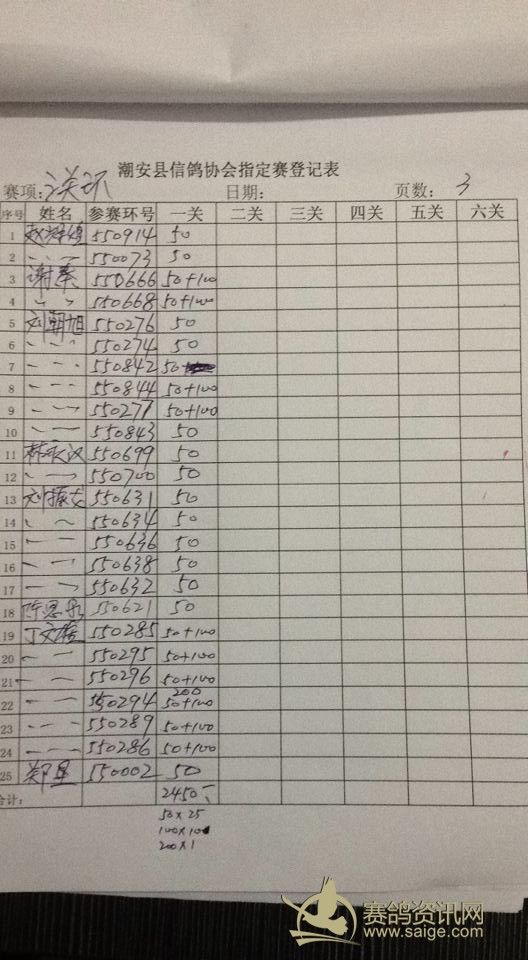 潮安县信鸽协会指定赛登记表
赛项: 关环 日期: 页数: 3
序号 姓名 参赛环号 一关 二关 三关 四关 五关 六关
1 550914 50
2 〃 〃 550073 50
3 谢泰 550666 50+100
4 〃 〃 550668 50+100
5 刘朝旭 550276 50
6 〃 〃 550274 50
7 〃 〃 550842 50
8 〃 〃 550844 50+100
9 〃 〃 550277 50+100
10 〃 〃 550843 50
11 林永汉 550699 50
12 〃 〃 550700 50
13 刘振 550631 50
14 〃 〃 550634 50
15 〃 〃 550636 50
16 〃 〃 550638 50
17 〃 〃 550632 50
18 550621 50
19 丁文 550285 50+100
20 〃 〃 550295 50+100
21 〃 〃 550296 50+100
22 〃 〃 550294 200 50+100
23 〃 〃 550289 50+100
24 〃 〃 550286 50+100
25 郑星 550002 50
合计: 2450
50×25
100×10
200×1
赛鸽资讯网
www.saige.com